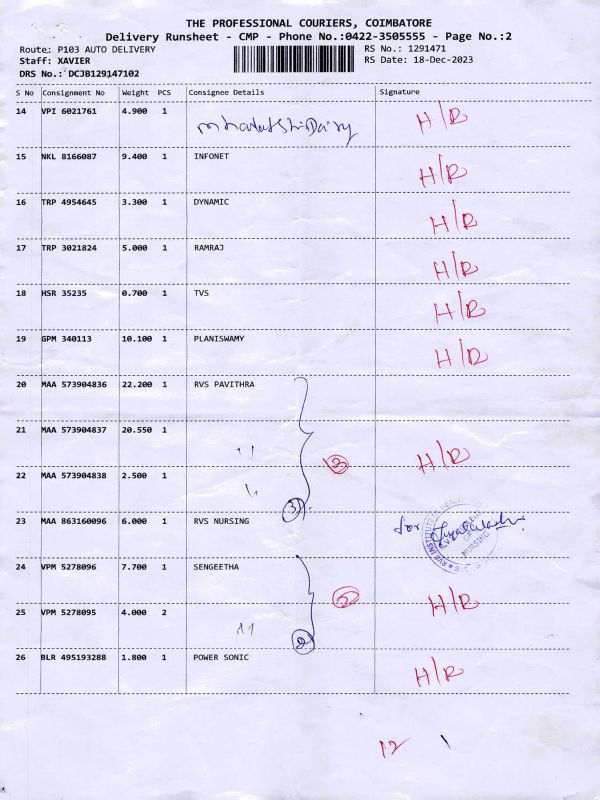 THE PROFESSIONAL COURIERS, COIMBATORE
Delivery Runsheet - CMP - Phone No.:0422-3505555 - Page No.:2
Route: P103 AUTO DELIVERY RS No.: 1291471
Staff: XAVIER RS Date: 18-Dec-2023
DRS No.: DCJB129147102
S No Consignment No Weight PCS Consignee Details Signature
14 VPI 6021761 4.900 1 H/R
15 NKL 8166087 9.400 1 INFONET H/R
16 TRP 4954645 3.300 1 DYNAMIC H/R
17 TRP 3021824 5.000 1 RAMRAJ H/R
18 HSR 35235 0.700 1 TVS H/R
19 GPM 340113 10.100 1 PLANISWAMY H/R
20 MAA 573904836 22.200 1 RVS PAVITHRA
21 MAA 573904837 20.550 1 " 3 H/R
22 MAA 573904838 2.500 1 " 3
23 MAA 863160096 6.000 1 RVS NURSING for
24 VPM 5278096 7.700 1 SENGEETHA
2 H/R
25 VPM 5278095 4.000 2 " 2
26 BLR 495193288 1.800 1 POWER SONIC H/R
12